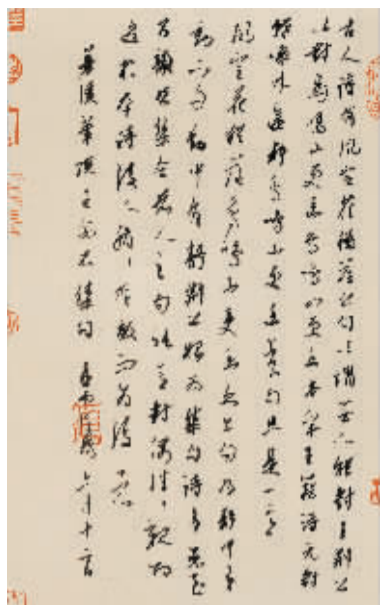 古人詩有風定花猶落之句以謂無人能對王荆公
以對鳥鳴山更幽鳥鳴山更幽本宋王籍詩元對
蟬噪林逾靜鳥鳴山更幽上下句只是一意
風定花猶落鳥鳴山更幽上句乃靜中有
動下句動中有靜荆公始為集句詩多者至
百韻皆集合前人之句語意對偶往往親切
過於本詩後人稍稍有效而為
集句